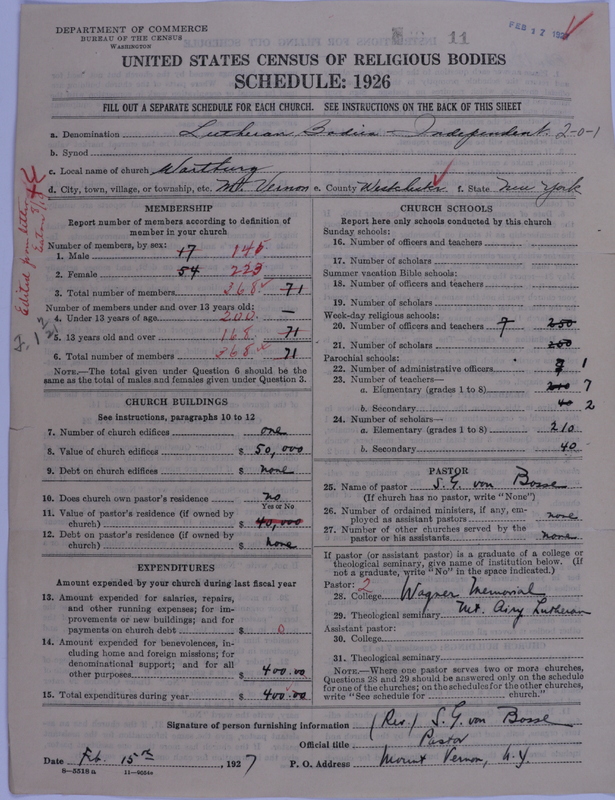 DEPARTMENT OF COMMERCE
BUREAU OF THE CENSUS
WASHINGTON
11
FEB 17 192
UNITED STATES CENSUS OF RELIGIOUS BODIES
SCHEDULE: 1926
FILL OUT A SEPARATE SCHEDULE FOR EACH CHURCH. SEE INSTRUCTIONS ON THE BACK OF THIS SHEET
a. Denomination Lutheran Bodies - Independent 2-0-1
b. Synod
c. Local name of church Wartburg
d. City, town, village, or township, etc. Mt. Vernon e. County Westchester f. State New York
MEMBERSHIP
Report number of members according to definition of member in your church
Number of members, by sex:
1. Male 17 145
2. Female 54 223
3. Total number of members 368 71
Number of members under and over 13 years old:
4. Under 13 years of age 200 —
5. 13 years old and over 168 71
6. Total number of members 368 71
NOTE.—The total given under Question 6 should be the same as the total of males and females given under Question 3.
CHURCH BUILDINGS
See instructions, paragraphs 10 to 12
7. Number of church edifices one
8. Value of church edifices $ 50,000
9. Debt on church edifices $ none
10. Does church own pastor's residence no
Yes or No
11. Value of pastor's residence (if owned by church) $ 40,000
12. Debt on pastor's residence (if owned by church) $ none
EXPENDITURES
Amount expended by your church during last fiscal year
13. Amount expended for salaries, repairs, and other running expenses; for improvements or new buildings; and for payments on church debt $ 0
14. Amount expended for benevolences, including home and foreign missions; for denominational support; and for all other purposes $ 400.00
15. Total expenditures during year $ 400.00
CHURCH SCHOOLS
Report here only schools conducted by this church
Sunday schools:
16. Number of officers and teachers
17. Number of scholars
Summer vacation Bible schools:
18. Number of officers and teachers
19. Number of scholars
Week-day religious schools:
20. Number of officers and teachers 7 250
21. Number of scholars 250
Parochial schools:
22. Number of administrative officers 1
23. Number of teachers—
a. Elementary (grades 1 to 8) 210 7
b. Secondary 40 2
24. Number of scholars—
a. Elementary (grades 1 to 8) 210
b. Secondary 40
PASTOR
25. Name of pastor S. G. von Bosse
(If church has no pastor, write "None")
26. Number of ordained ministers, if any, employed as assistant pastors none
27. Number of other churches served by the pastor or his assistants none
If pastor (or assistant pastor) is a graduate of a college or theological seminary, give name of institution below. (If not a graduate, write "No" in the space indicated.)
Pastor: 2
28. College Wagner Memorial
29. Theological seminary Mt. Airy Lutheran
Assistant pastor:
30. College
31. Theological seminary
NOTE.—Where one pastor serves two or more churches, Questions 28 and 29 should be answered only on the schedule for one of the churches; on the schedules for the other churches, write "See schedule for church."
Signature of person furnishing information (Rev.) S. G. von Bosse
Official title Pastor
Date Feb. 15th, 1927 P. O. Address Mount Vernon, N.Y.
8—5518 a